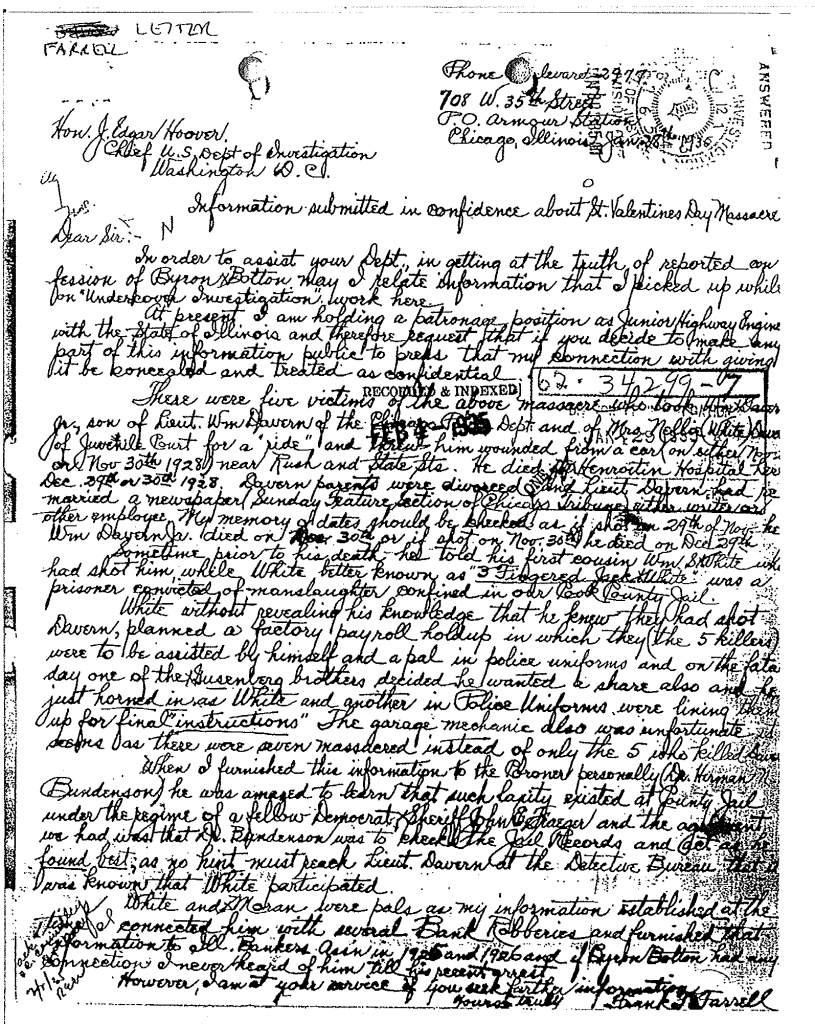 LETTER
FARRELL
Phone levard 2977
708 W. 35th Street
P.O. Armour Station
Chicago, Illinois, Jan. 28th 1935
ANSWERED
Hon. J. Edgar Hoover,
Chief U.S. Dept of Investigation
Washington D.C.
Information submitted in confidence about St. Valentines Day Massacre
Dear Sir:-
In order to assist your Dept., in getting at the truth, of reported con
fession of Byron Bolton may I relate information that I picked up while
on "Undercover Investigation" work here.
At present I am holding a patronage position as Junior Highway Engine
with the State of Illinois and therefore request that if you decide to make any
part of this information public to press that my connection with giving
it be concealed and treated as confidential.
RECORDED & INDEXED
62-34299-7
There were five victims of the above massacre who took Wm Davern
Jr., son of Lieut. Wm Davern of the Chicago Police Dept and of Mrs. Nellie (White) Davern
FEB 4 1935
JAN 29 1935
of Juvenile Court for a "ride" and threw him wounded from a car on either Nov
or Nov 30th 1928 near Rush and State Sts. He died at Henrotin Hospital here
Dec. 29th or 30th 1928. Davern parents were divorced and Lieut Davern had re
married a newspaper (Sunday Feature section of Chicago Tribune) either writer or
other employee. My memory of dates should be checked as if shot on 29th of Nov. he
Wm Davern Jr. died on 30th or if shot on Nov. 30th he died on Dec 29th
Sometime prior to his death he told his first cousin Wm S. White who
had shot him, while White better known as "3 Fingered Jack White" was a
prisoner convicted of manslaughter confined in our Cook County Jail.
White without revealing his knowledge that he knew they had shot
Davern, planned a factory payroll holdup in which they (the 5 killers)
were to be assisted by himself and a pal in police uniforms and on the fata
day one of the Gusenberg brothers decided he wanted a share also and he
just horned in as White and another in Police Uniforms were lining them
up for final "instructions" The garage mechanic also was unfortunate it
seems as there were seven massacred instead of only the 5 who killed Dave
When I furnished this information to the Coroner personally (Dr. Herman N
Bundenson) he was amazed to learn that such laxity existed at County Jail
under the regime of a fellow Democrat Sheriff John E. Traeger and the agreement
we had was that Dr. Bundenson was to check the Jail Records and act as he
found best, as no hint must reach Lieut. Davern at the Detective Bureau that it
was known that White participated.
White and Moran were pals as my information established at the
time I connected him with several Bank Robberies and furnished that
information to Ill. Bankers Ass'n in 1925 and 1926 and if Byron Bolton had any
connection I never heard of him till his recent arrest.
However, I am at your service if you seek further information
Yours truly
Frank T. Farrell